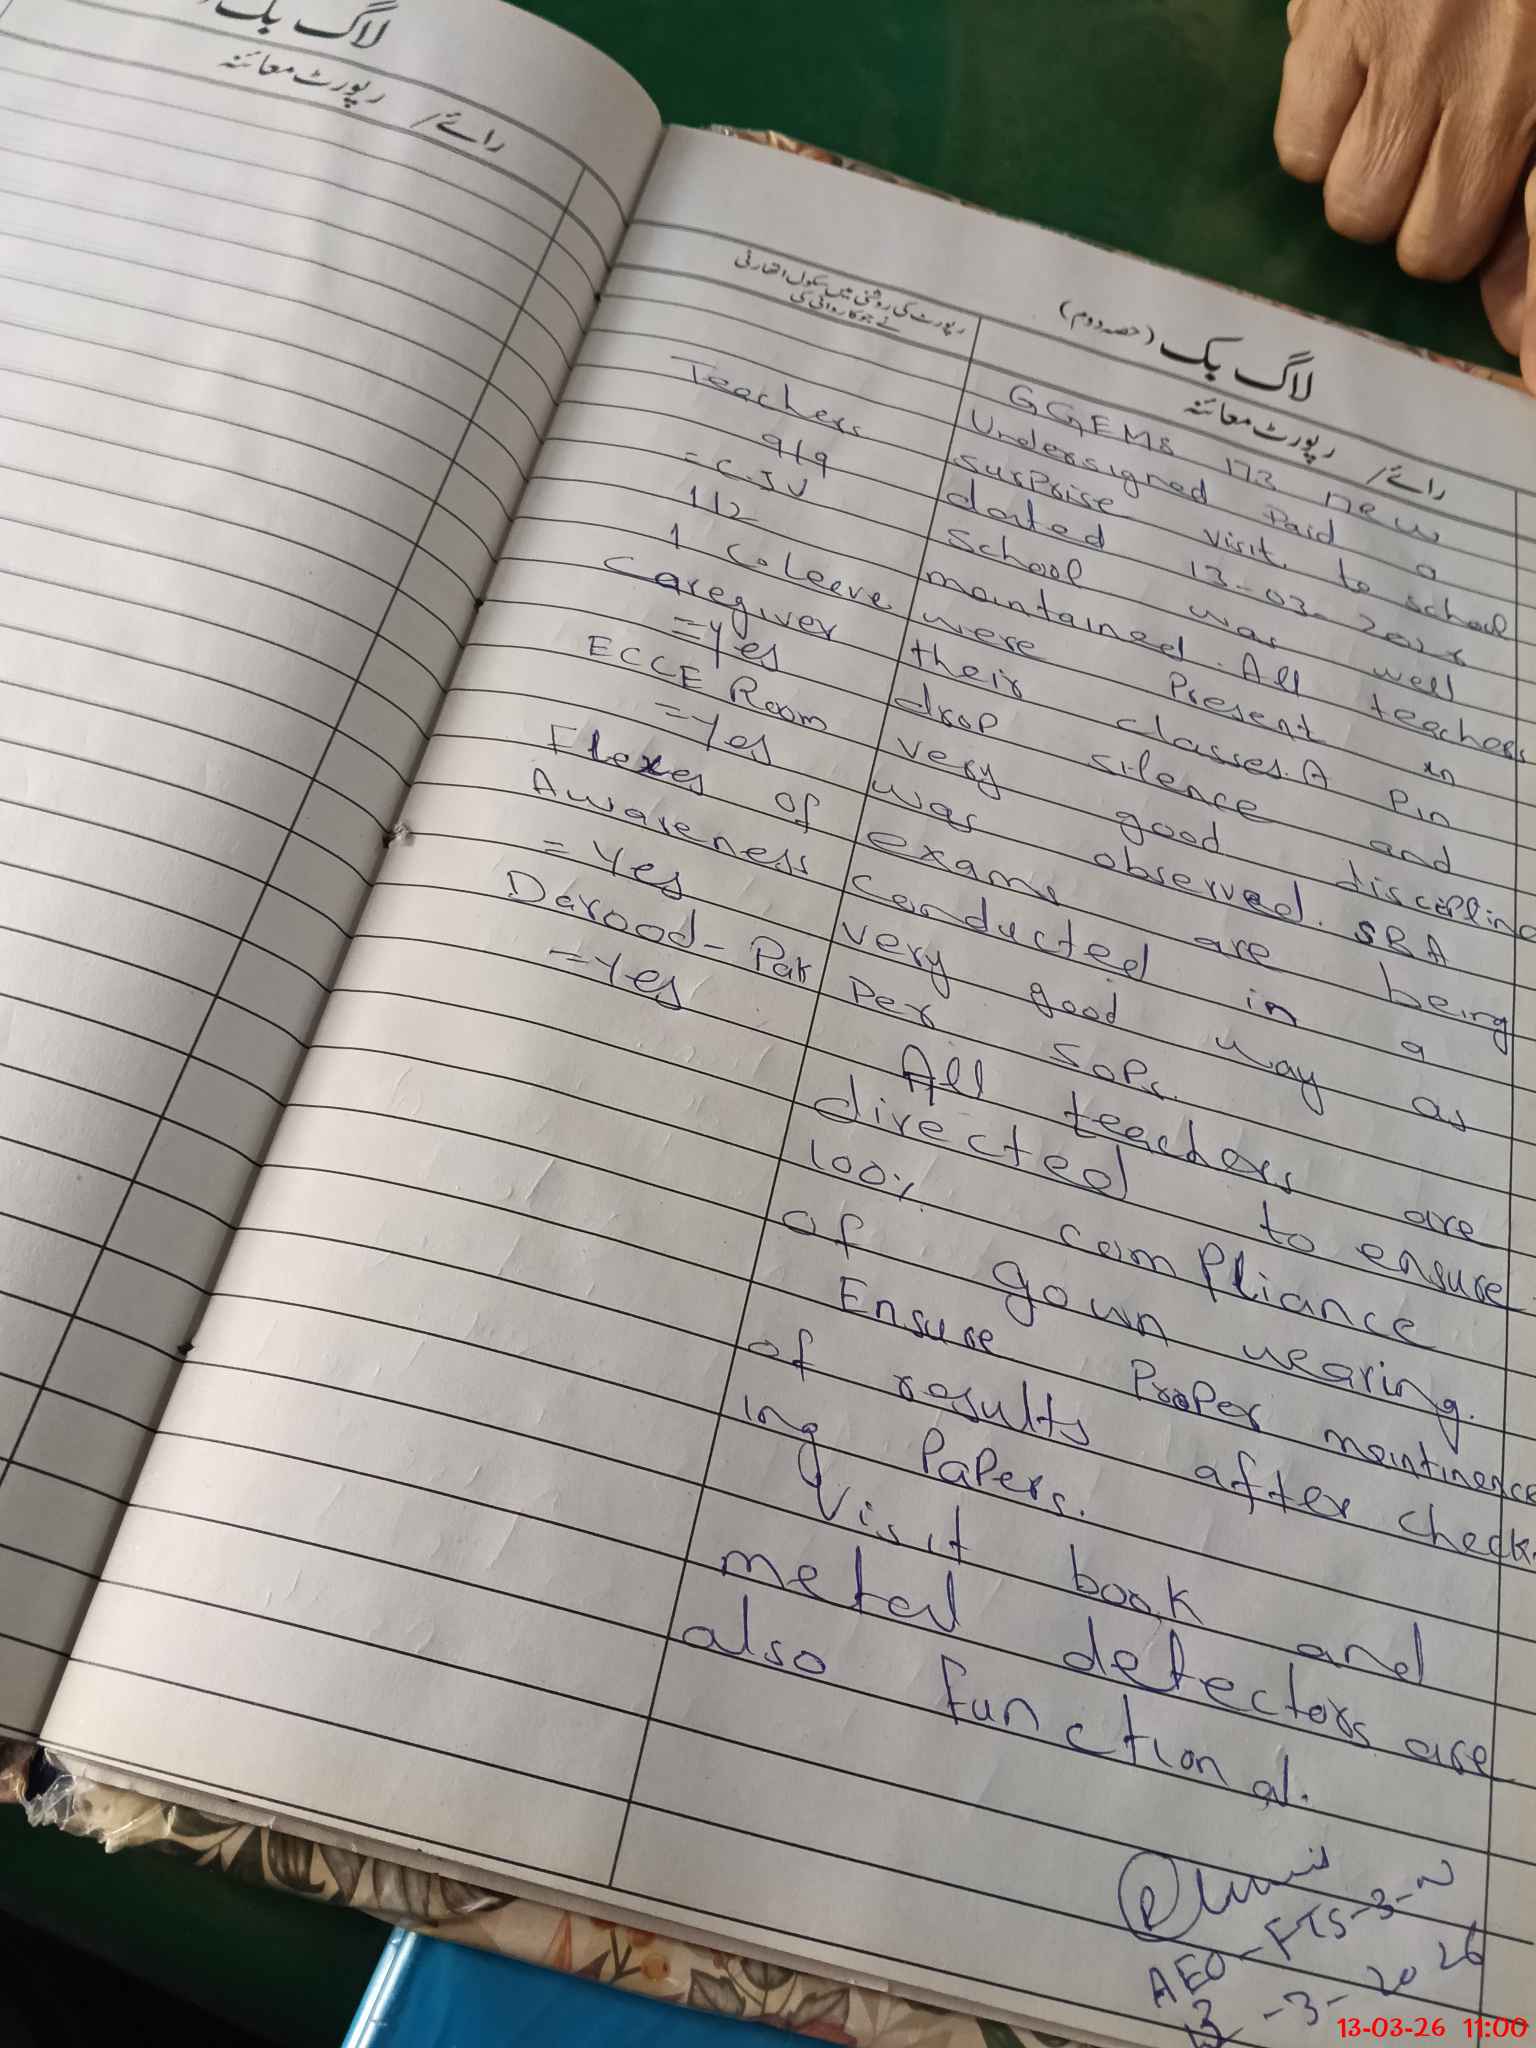 لاگ بک
رپورٹ معائنہ
رائے/
لاگ بک (حصہ دوم)
رپورٹ کی روشنی میں سکول اتھارٹی
نے جو کاروائی کی
رپورٹ معائنہ
رائے/
Teachers
9/9
= C.IV
1/2
1 C. Leeve
Caregiver
= Yes
ECCE Room
= Yes
Flexes of
Awareness
= Yes
Darood-Pak
= Yes
GGEMS 173 new
Undersigned Paid a
surprise visit to school
dated 13-03-
School was well
maintained. All teachers
were Present in
their classes. A Pin
drop silence and
very good discipline
was observed. SBA
exams are being
conducted in a
very good way as
Per SOPs.
All teachers are
directed to ensure
100% compliance
of gown wearing.
Ensure Proper maintinence
of results after check-
ing Papers.
Visit book and
metal detectors are
also functional.
AEO-FTS-3-N
13-3-2026
13-03-26 11:00